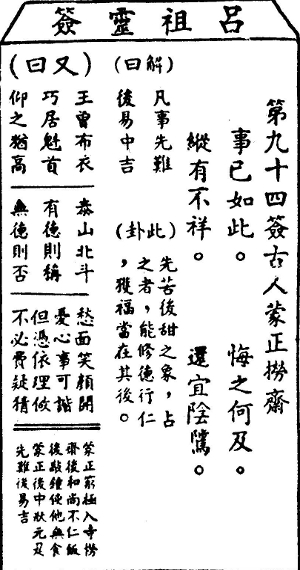 呂祖靈簽
第九十四簽古人蒙正撈齋
事已如此。悔之何及。
縱有不祥。還宜陰騭。
(解曰)
凡事先難
後易中吉
(此卦)
先苦後甜之象，占
之者，能修德行仁
，獲福當在其後。
(又曰)
王曾布衣
巧居魁首
仰之猶高
泰山北斗
有德則稱
無德則否
愁面笑顏開
憂心事可諧
但憑依理做
不必費疑猜
蒙正窮極入寺撈
齋後和尚不仁飯
後敲鐘使他無食
蒙正後中狀元及
先難後易吉